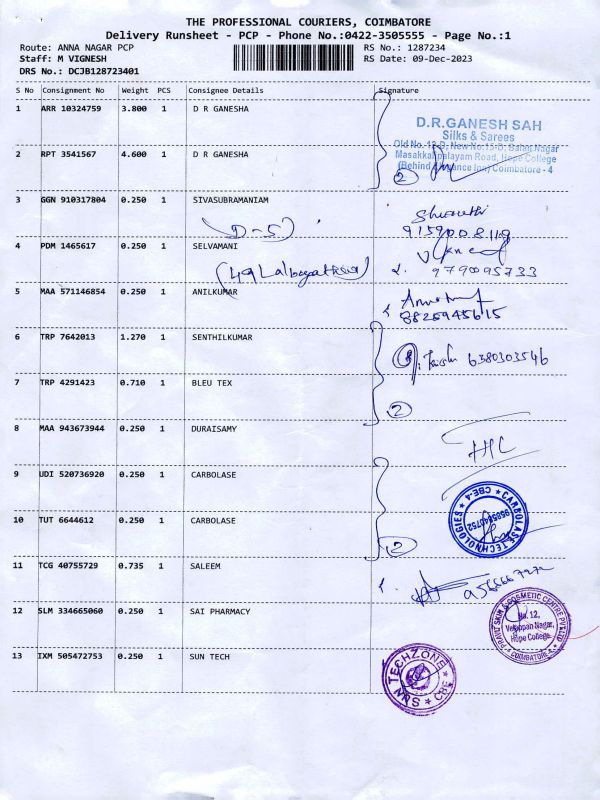 THE PROFESSIONAL COURIERS, COIMBATORE
Delivery Runsheet - PCP - Phone No.:0422-3505555 - Page No.:1
Route: ANNA NAGAR PCP
RS No.: 1287234
Staff: M VIGNESH
RS Date: 09-Dec-2023
DRS No.: DCJB128723401
S No Consignment No Weight PCS Consignee Details Signature
1 ARR 10324759 3.800 1 D R GANESHA
D.R.GANESH SAH
Silks & Sarees
Old No. 12-D, New No:15-D, Balaji Nagar
Masakkalipalayam Road, Hope College
Coimbatore - 4
2 RPT 3541567 4.600 1 D R GANESHA
2
3 GGN 910317804 0.250 1 SIVASUBRAMANIAM
(D-5)
9159008119
4 PDM 1465617 0.250 1 SELVAMANI
979095733
5 MAA 571146854 0.250 1 ANILKUMAR
8825945615
6 TRP 7642013 1.270 1 SENTHILKUMAR
6380303546
7 TRP 4291423 0.710 1 BLEU TEX
2
8 MAA 943673944 0.250 1 DURAISAMY
9 UDI 520736920 0.250 1 CARBOLASE
CARBOLASE TECHNOLOGIES
CBE-4
10 TUT 6644612 0.250 1 CARBOLASE
2
11 TCG 40755729 0.735 1 SALEEM
12 SLM 334665060 0.250 1 SAI PHARMACY
SKIN & COSMETIC CENTRE PVT LTD
No. 12,
Nagar,
Hope College,
COIMBATORE-4
13 IXM 505472753 0.250 1 SUN TECH
TECHZONE
NRS
CBE